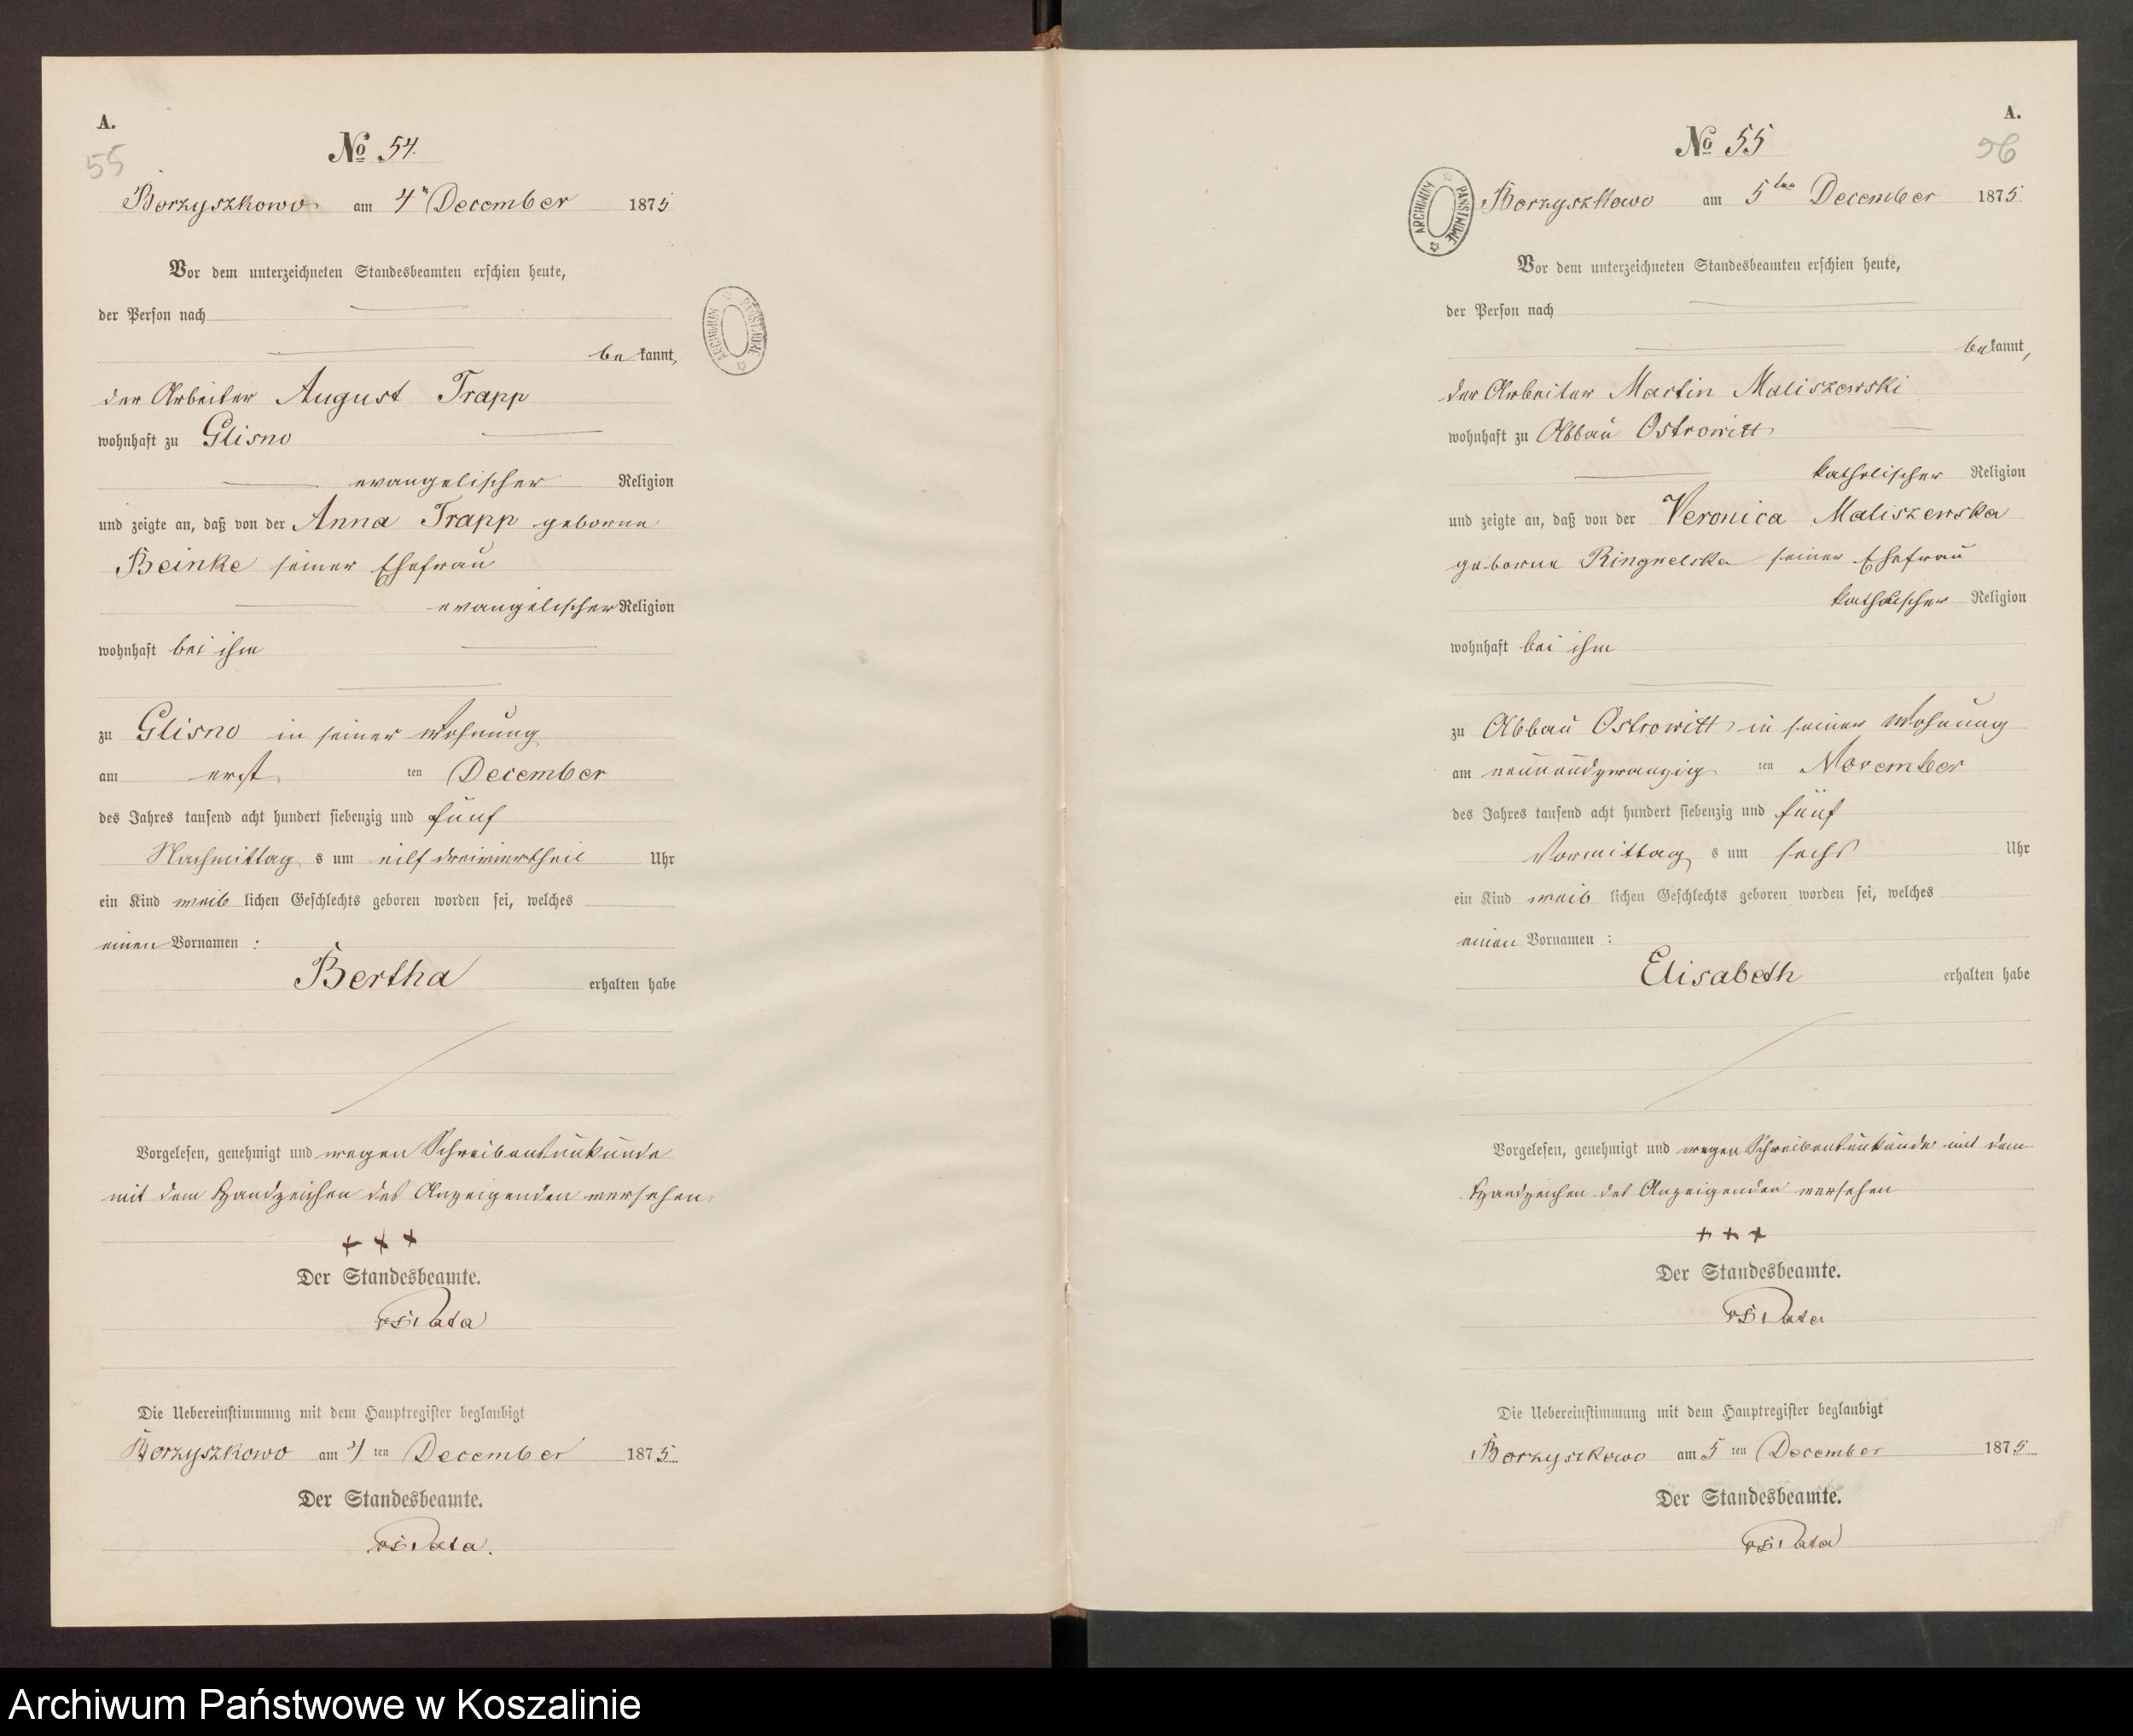 A.
55
No 54.
Borzyszkowo am 4n December 1875
Vor dem unterzeichneten Standesbeamten erschien heute,
der Person nach
be kannt,
der Arbeiter August Trapp
wohnhaft zu Glisno
evangelischer Religion
und zeigte an, daß von der Anna Trapp geborne
Beinke seiner Ehefrau
evangelischer Religion
wohnhaft bei ihm
zu Glisno in seiner Wohnung
am erst ten December
des Jahres tausend acht hundert siebenzig und fünf
Nachmittag s um eilf dreiviertheil Uhr
ein Kind weib lichen Geschlechts geboren worden sei, welches
einen Vornamen :
Bertha erhalten habe
Vorgelesen, genehmigt und wegen Schreibensunkunde
mit dem Handzeichen des Anzeigenden versehen
+ + +
Der Standesbeamte.
Die Uebereinstimmung mit dem Hauptregister beglaubigt
Borzyszkowo am 4 ten December 1875
Der Standesbeamte.
ARCHIWUM PAŃSTWOWE
A.
56
No 55
Borzyszkowo am 5ten December 1875
Vor dem unterzeichneten Standesbeamten erschien heute,
der Person nach
be kannt,
der Arbeiter Martin Maliszewski
wohnhaft zu Abbau Ostrowitt
katholischer Religion
und zeigte an, daß von der Veronica Maliszewska
geborne seiner Ehefrau
katholischer Religion
wohnhaft bei ihm
zu Abbau Ostrowitt in seiner Wohnung
am neunundzwanzig ten November
des Jahres tausend acht hundert siebenzig und fünf
Vormittag s um sechs Uhr
ein Kind weib lichen Geschlechts geboren worden sei, welches
einen Vornamen :
Elisabeth erhalten habe
Vorgelesen, genehmigt und wegen Schreibensunkunde mit dem
Handzeichen des Anzeigenden versehen
+ + +
Der Standesbeamte.
Die Uebereinstimmung mit dem Hauptregister beglaubigt
Borzyszkowo am 5 ten December 1875
Der Standesbeamte.
ARCHIWUM PAŃSTWOWE
Archiwum Państwowe w Koszalinie